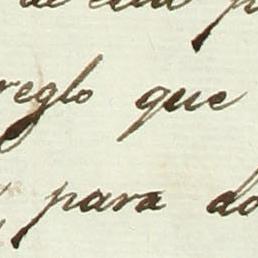 de esta p
reglo que
, para do